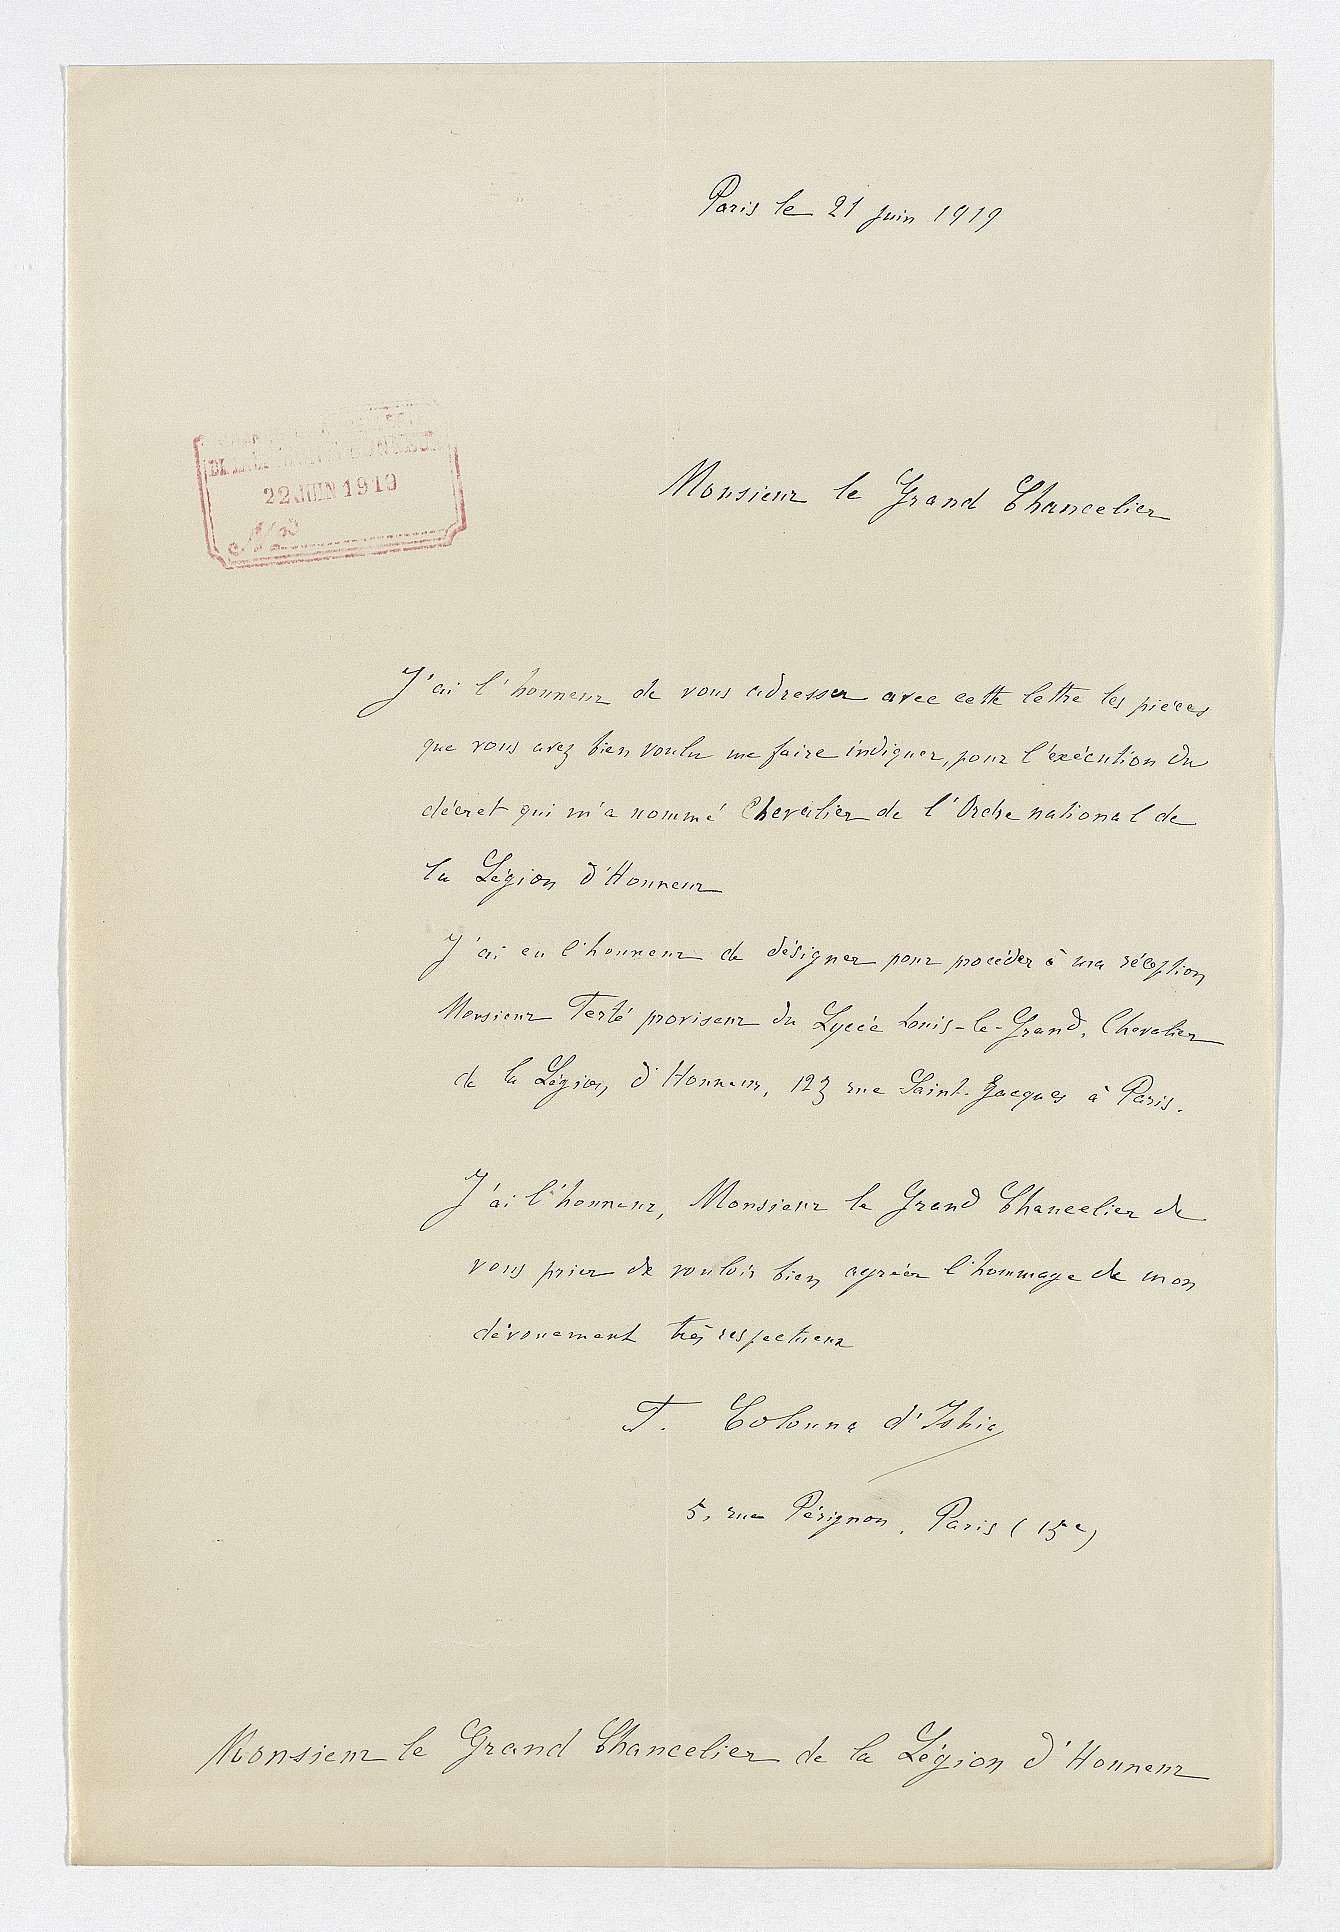 Paris le 21 juin 1919
22 JUIN 1919
Monsieur le Grand Chancelier
J'ai l'honneur de vous adresser avec cette lettre les pièces
que vous avez bien voulu me faire indiquer, pour l'exécution du
décret qui m'a nommé Chevalier de l'Ordre national de
la Légion d'Honneur
J'ai eu l'honneur de désigner pour procéder à ma réception
Monsieur Ferté proviseur du Lycée Louis-le-Grand, Chevalier
de la Légion d'Honneur, 123 rue Saint-Jacques à Paris.
J'ai l'honneur, Monsieur le Grand Chancelier de
vous prier de vouloir bien agréer l'hommage de mon
dévouement très respectueux
T. Colonna d'Istria
5, rue Pérignon, Paris (15e)
Monsieur le Grand Chancelier de la Légion d'Honneur